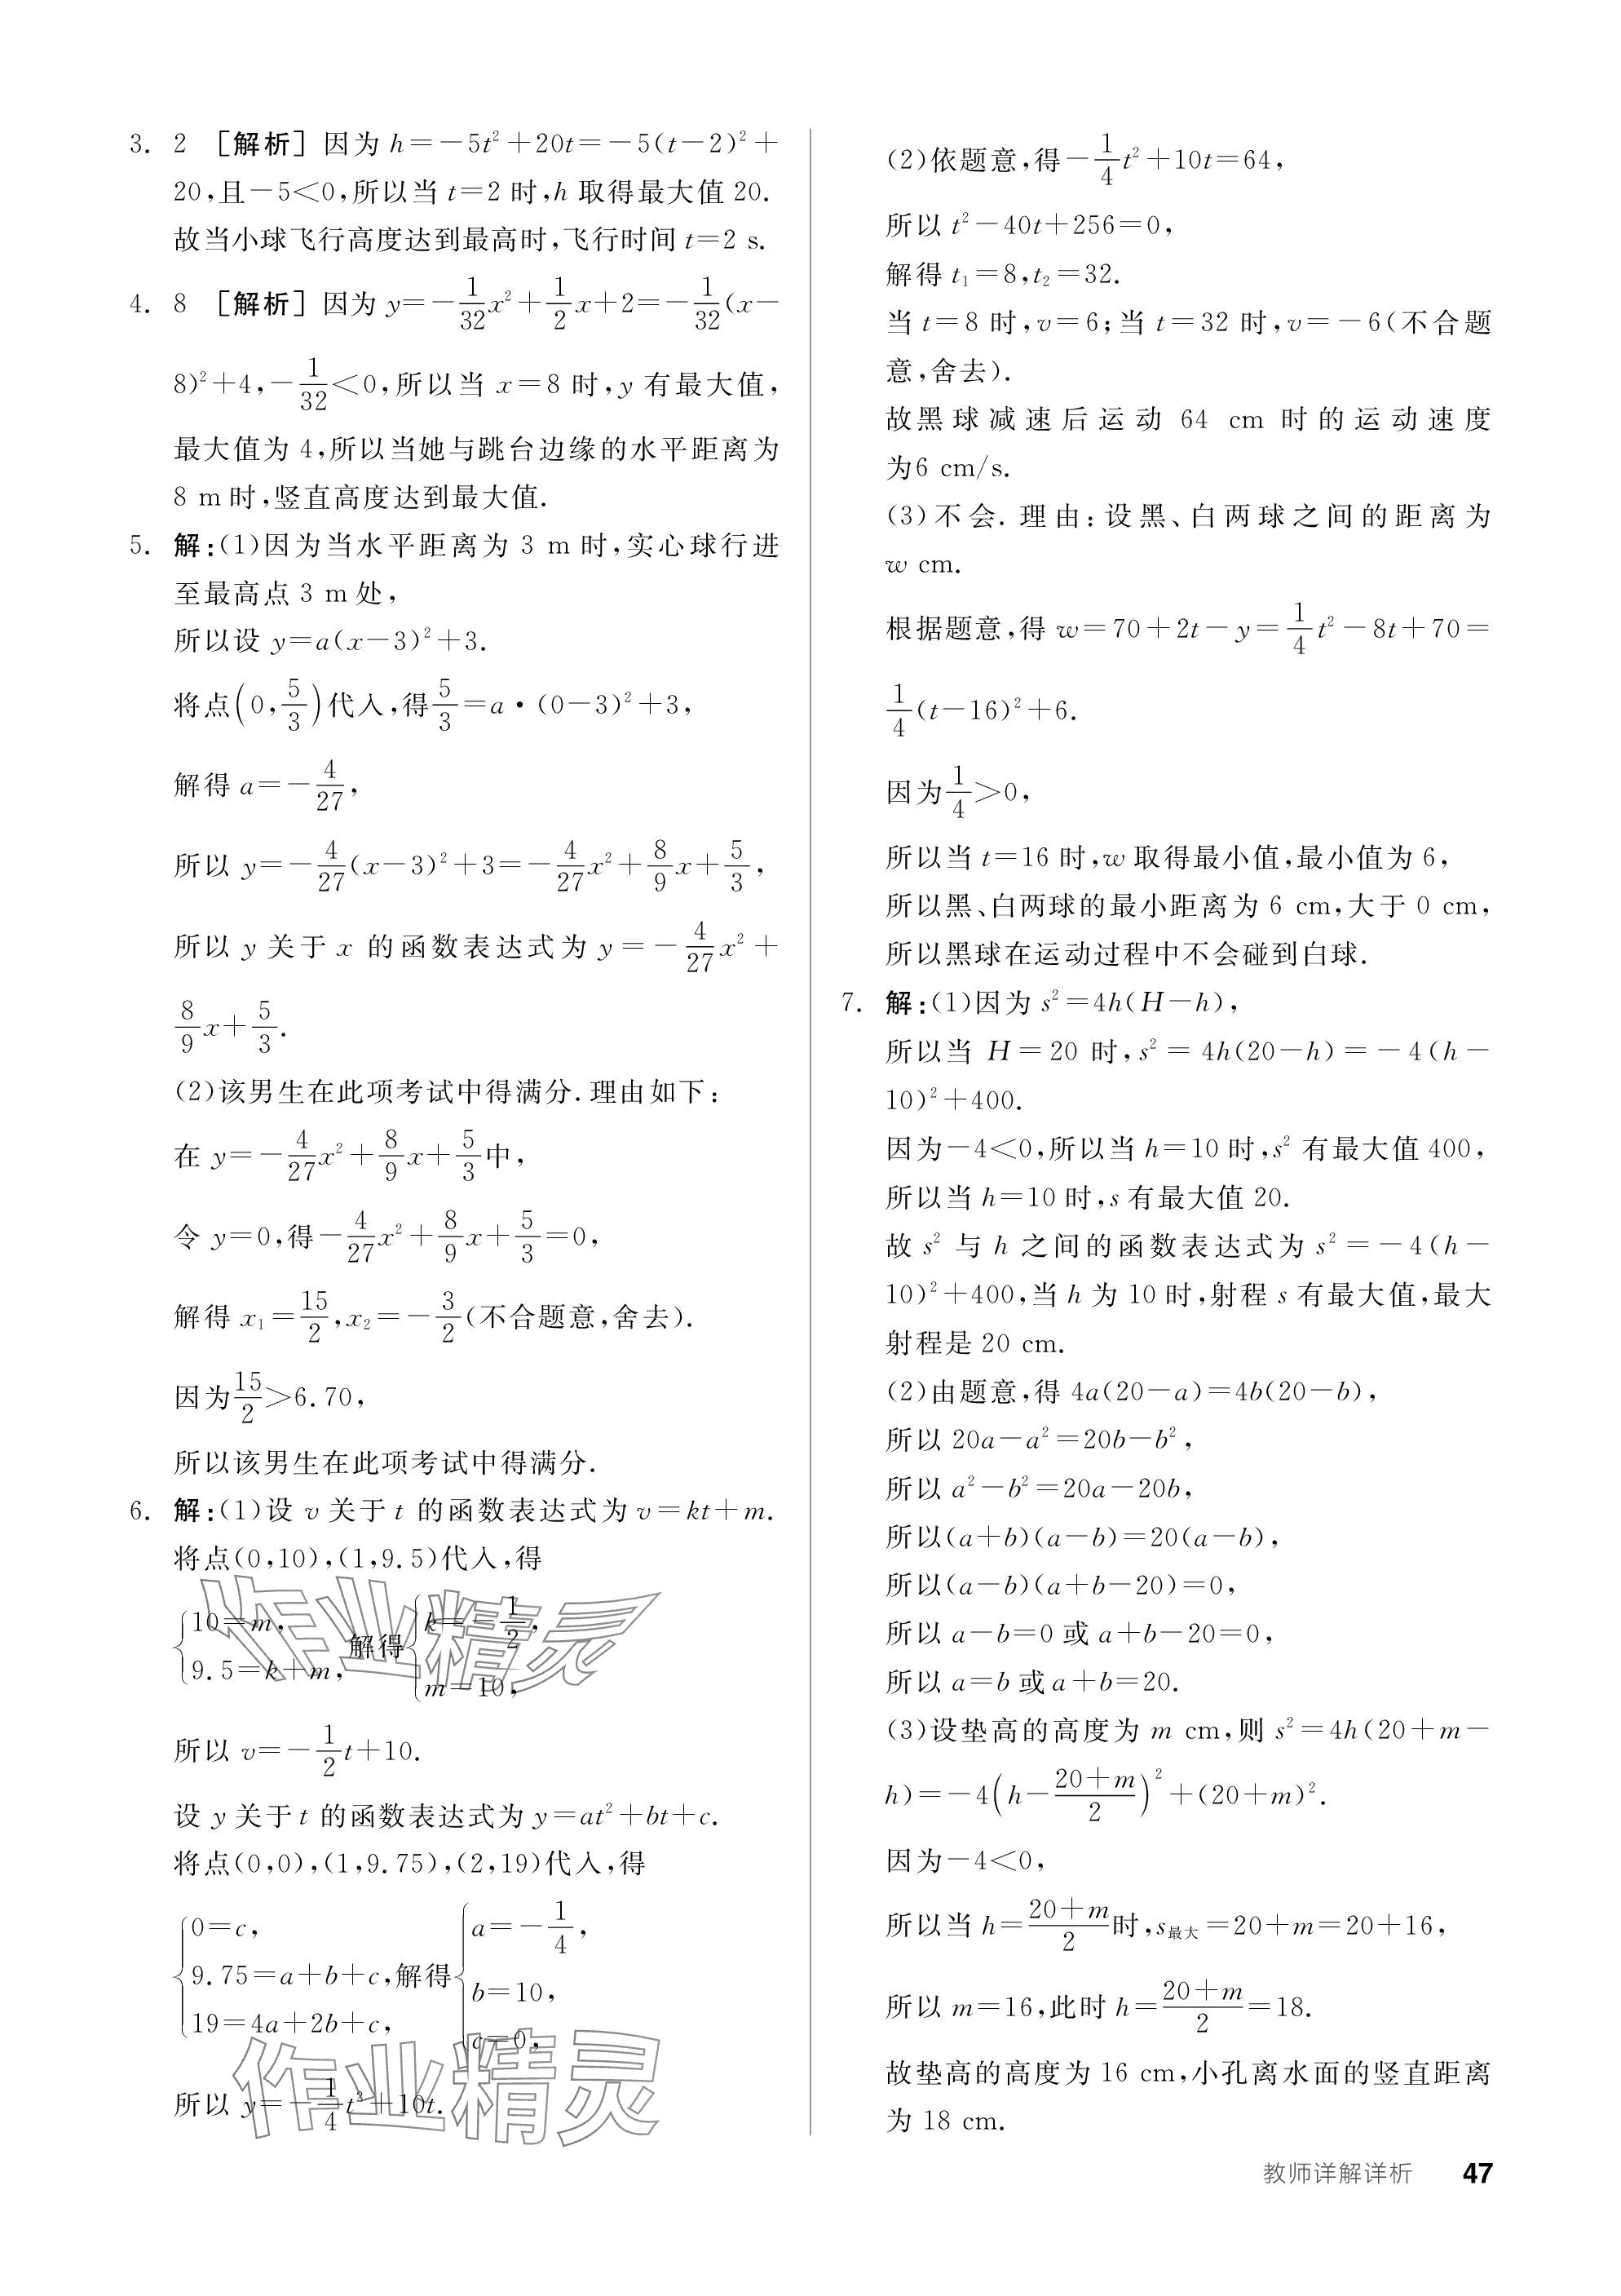 3. 2 [解析] 因为 h=−5t²+20t=−5(t−2)²+
20,且−5<0,所以当 t=2 时,h 取得最大值 20.
故当小球飞行高度达到最高时,飞行时间 t=2 s.
4. 8 [解析] 因为 y=−1/32x²+1/2x+2=−1/32(x−
8)²+4,−1/32<0,所以当 x=8 时,y 有最大值,
最大值为 4,所以当她与跳台边缘的水平距离为
8 m 时,竖直高度达到最大值.
5. 解:(1)因为当水平距离为 3 m 时,实心球行进
至最高点 3 m 处,
所以设 y=a(x−3)²+3.
将点(0,5/3)代入,得5/3=a·(0−3)²+3,
解得 a=−4/27,
所以 y=−4/27(x−3)²+3=−4/27x²+8/9x+5/3,
所以 y 关于 x 的函数表达式为 y=−4/27x²+
8/9x+5/3.
(2)该男生在此项考试中得满分.理由如下:
在 y=−4/27x²+8/9x+5/3中,
令 y=0,得−4/27x²+8/9x+5/3=0,
解得 x₁=15/2,x₂=−3/2(不合题意,舍去).
因为15/2>6.70,
所以该男生在此项考试中得满分.
6. 解:(1)设 v 关于 t 的函数表达式为 v=kt+m.
将点(0,10),(1,9.5)代入,得
{10=m, 9.5=k+m, 解得{k=−1/2, m=10,
所以 v=−1/2t+10.
设 y 关于 t 的函数表达式为 y=at²+bt+c.
将点(0,0),(1,9.75),(2,19)代入,得
{0=c, 9.75=a+b+c, 19=4a+2b+c, 解得{a=−1/4, b=10, c=0,
所以 y=−1/4t²+10t.
作业精灵
作业精灵
(2)依题意,得−1/4t²+10t=64,
所以 t²−40t+256=0,
解得 t₁=8,t₂=32.
当 t=8 时,v=6;当 t=32 时,v=−6(不合题
意,舍去).
故黑球减速后运动 64 cm 时的运动速度
为6 cm/s.
(3)不会.理由:设黑、白两球之间的距离为
w cm.
根据题意,得 w=70+2t−y=1/4t²−8t+70=
1/4(t−16)²+6.
因为1/4>0,
所以当 t=16 时,w 取得最小值,最小值为 6,
所以黑、白两球的最小距离为 6 cm,大于 0 cm,
所以黑球在运动过程中不会碰到白球.
7. 解:(1)因为 s²=4h(H−h),
所以当 H=20 时,s²=4h(20−h)=−4(h−
10)²+400.
因为−4<0,所以当 h=10 时,s² 有最大值 400,
所以当 h=10 时,s 有最大值 20.
故 s² 与 h 之间的函数表达式为 s²=−4(h−
10)²+400,当 h 为 10 时,射程 s 有最大值,最大
射程是 20 cm.
(2)由题意,得 4a(20−a)=4b(20−b),
所以 20a−a²=20b−b²,
所以 a²−b²=20a−20b,
所以(a+b)(a−b)=20(a−b),
所以(a−b)(a+b−20)=0,
所以 a−b=0 或 a+b−20=0,
所以 a=b 或 a+b=20.
(3)设垫高的高度为 m cm,则 s²=4h(20+m−
h)=−4(h−(20+m)/2)²+(20+m)².
因为−4<0,
所以当 h=(20+m)/2时,s最大=20+m=20+16,
所以 m=16,此时 h=(20+m)/2=18.
故垫高的高度为 16 cm,小孔离水面的竖直距离
为 18 cm.
教师详解详析 47